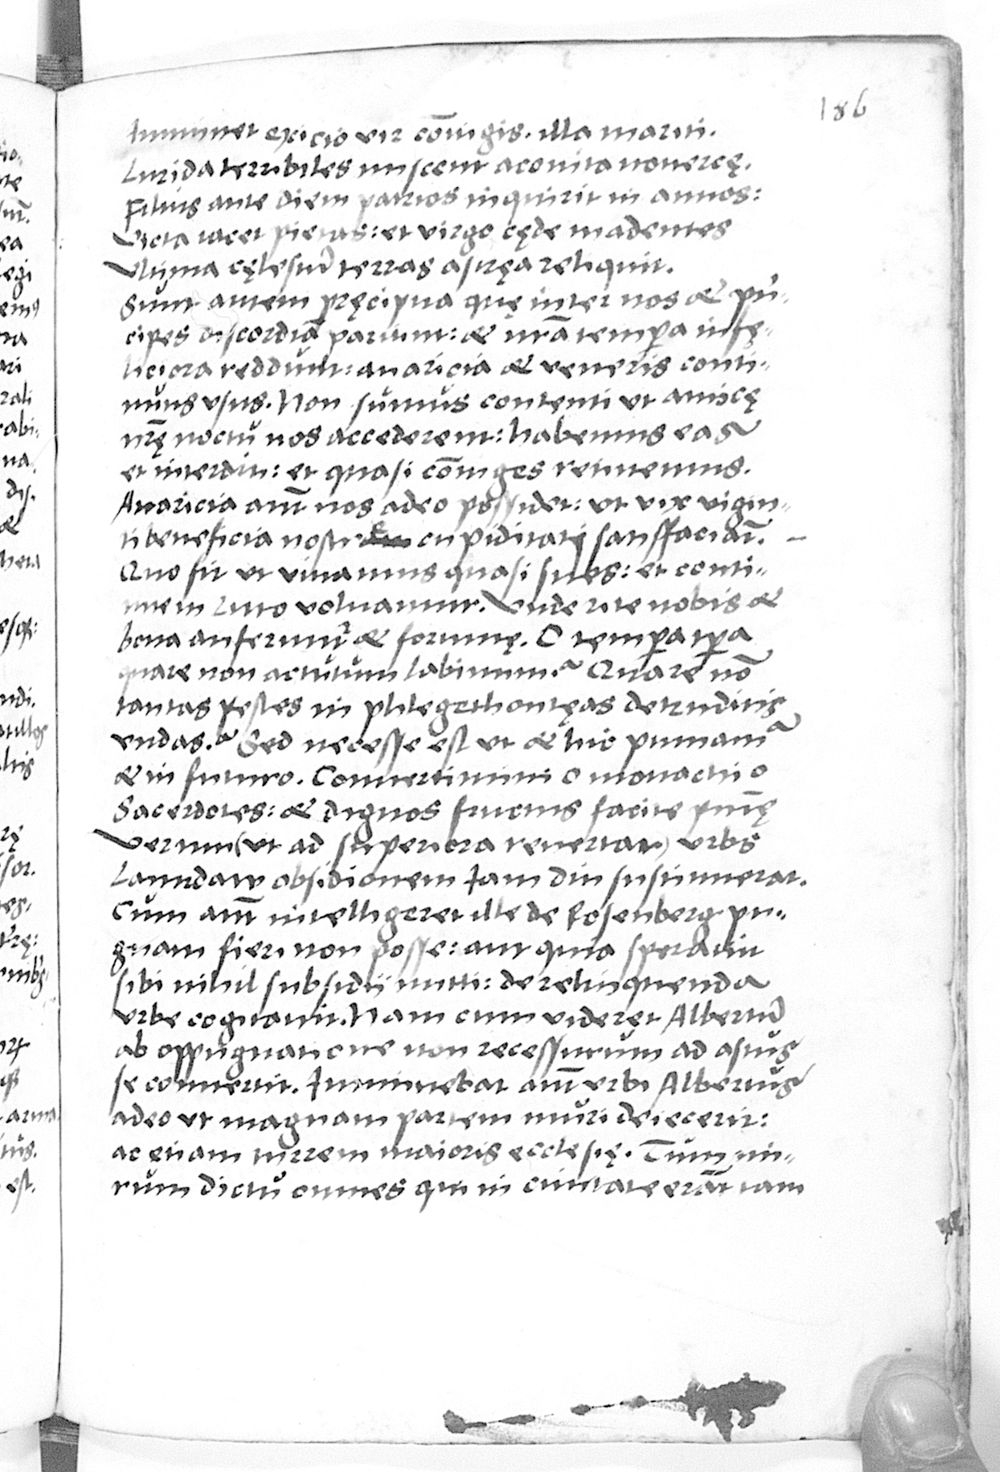 186
Imminet exicio vir cōiugis. illa mariti.
Lurida terribiles miscent aconita novercę.
Filius ante diem patrios inquirit in annos:
Victa iacet pietas: et virgo cęde madentes
Vltima cęlestuũ terras astręa reliquit.
Sunt autem pręcipua quę inter nos & prī-
cipes discordiã pariunt: & nr̃a tempora infę-
liciora reddunt: avaricia & veneris conti-
nuus vsus. Non sumus contenti vt amicę
nr̃ę noctu nos accederent: habemus eas
et interdiu: et quasi cōiuges retinemus.
Avaricia aũt nos adeo possidet: vt vix vigin-
ti beneficia nostrę cupiditati satisfaciãt.
Quo fit vt vivamus quasi sues: et conti-
nuem luto voluamur. Vnde rite nobis &
bona auferunt̃ & fortunę. O tempora tp̃a
quare non actutum labimini? Quare nō
tantas pestes in phlegethontęas detruditis
vndas? Sed necesse est vt & hic puniam̃
& in futuro. Convertimini o monachi o
Sacerdotes: & dignos fructus facite pnię
Verum (vt ad superiora revertar) vrbs
Laundaw obsidionem Iam diu sustinuerat.
Cum aũt intelligeret ille de Rosenberg pu-
gnam fieri non posse: aut quia speravit
sibi nihil subsidij mitti: de relinquenda
vrbe cogitavit. Nam cum videret Albertũ
ab oppugnatione non recessurum ad astus
se convertit. Imminebat aũt vrbi Albertus
adeo vt magnam partem muri deiecerit:
ac etiam turrem maioris ecclesię. Tum mi-
rum dictu omnes qui in civitate erãt tam